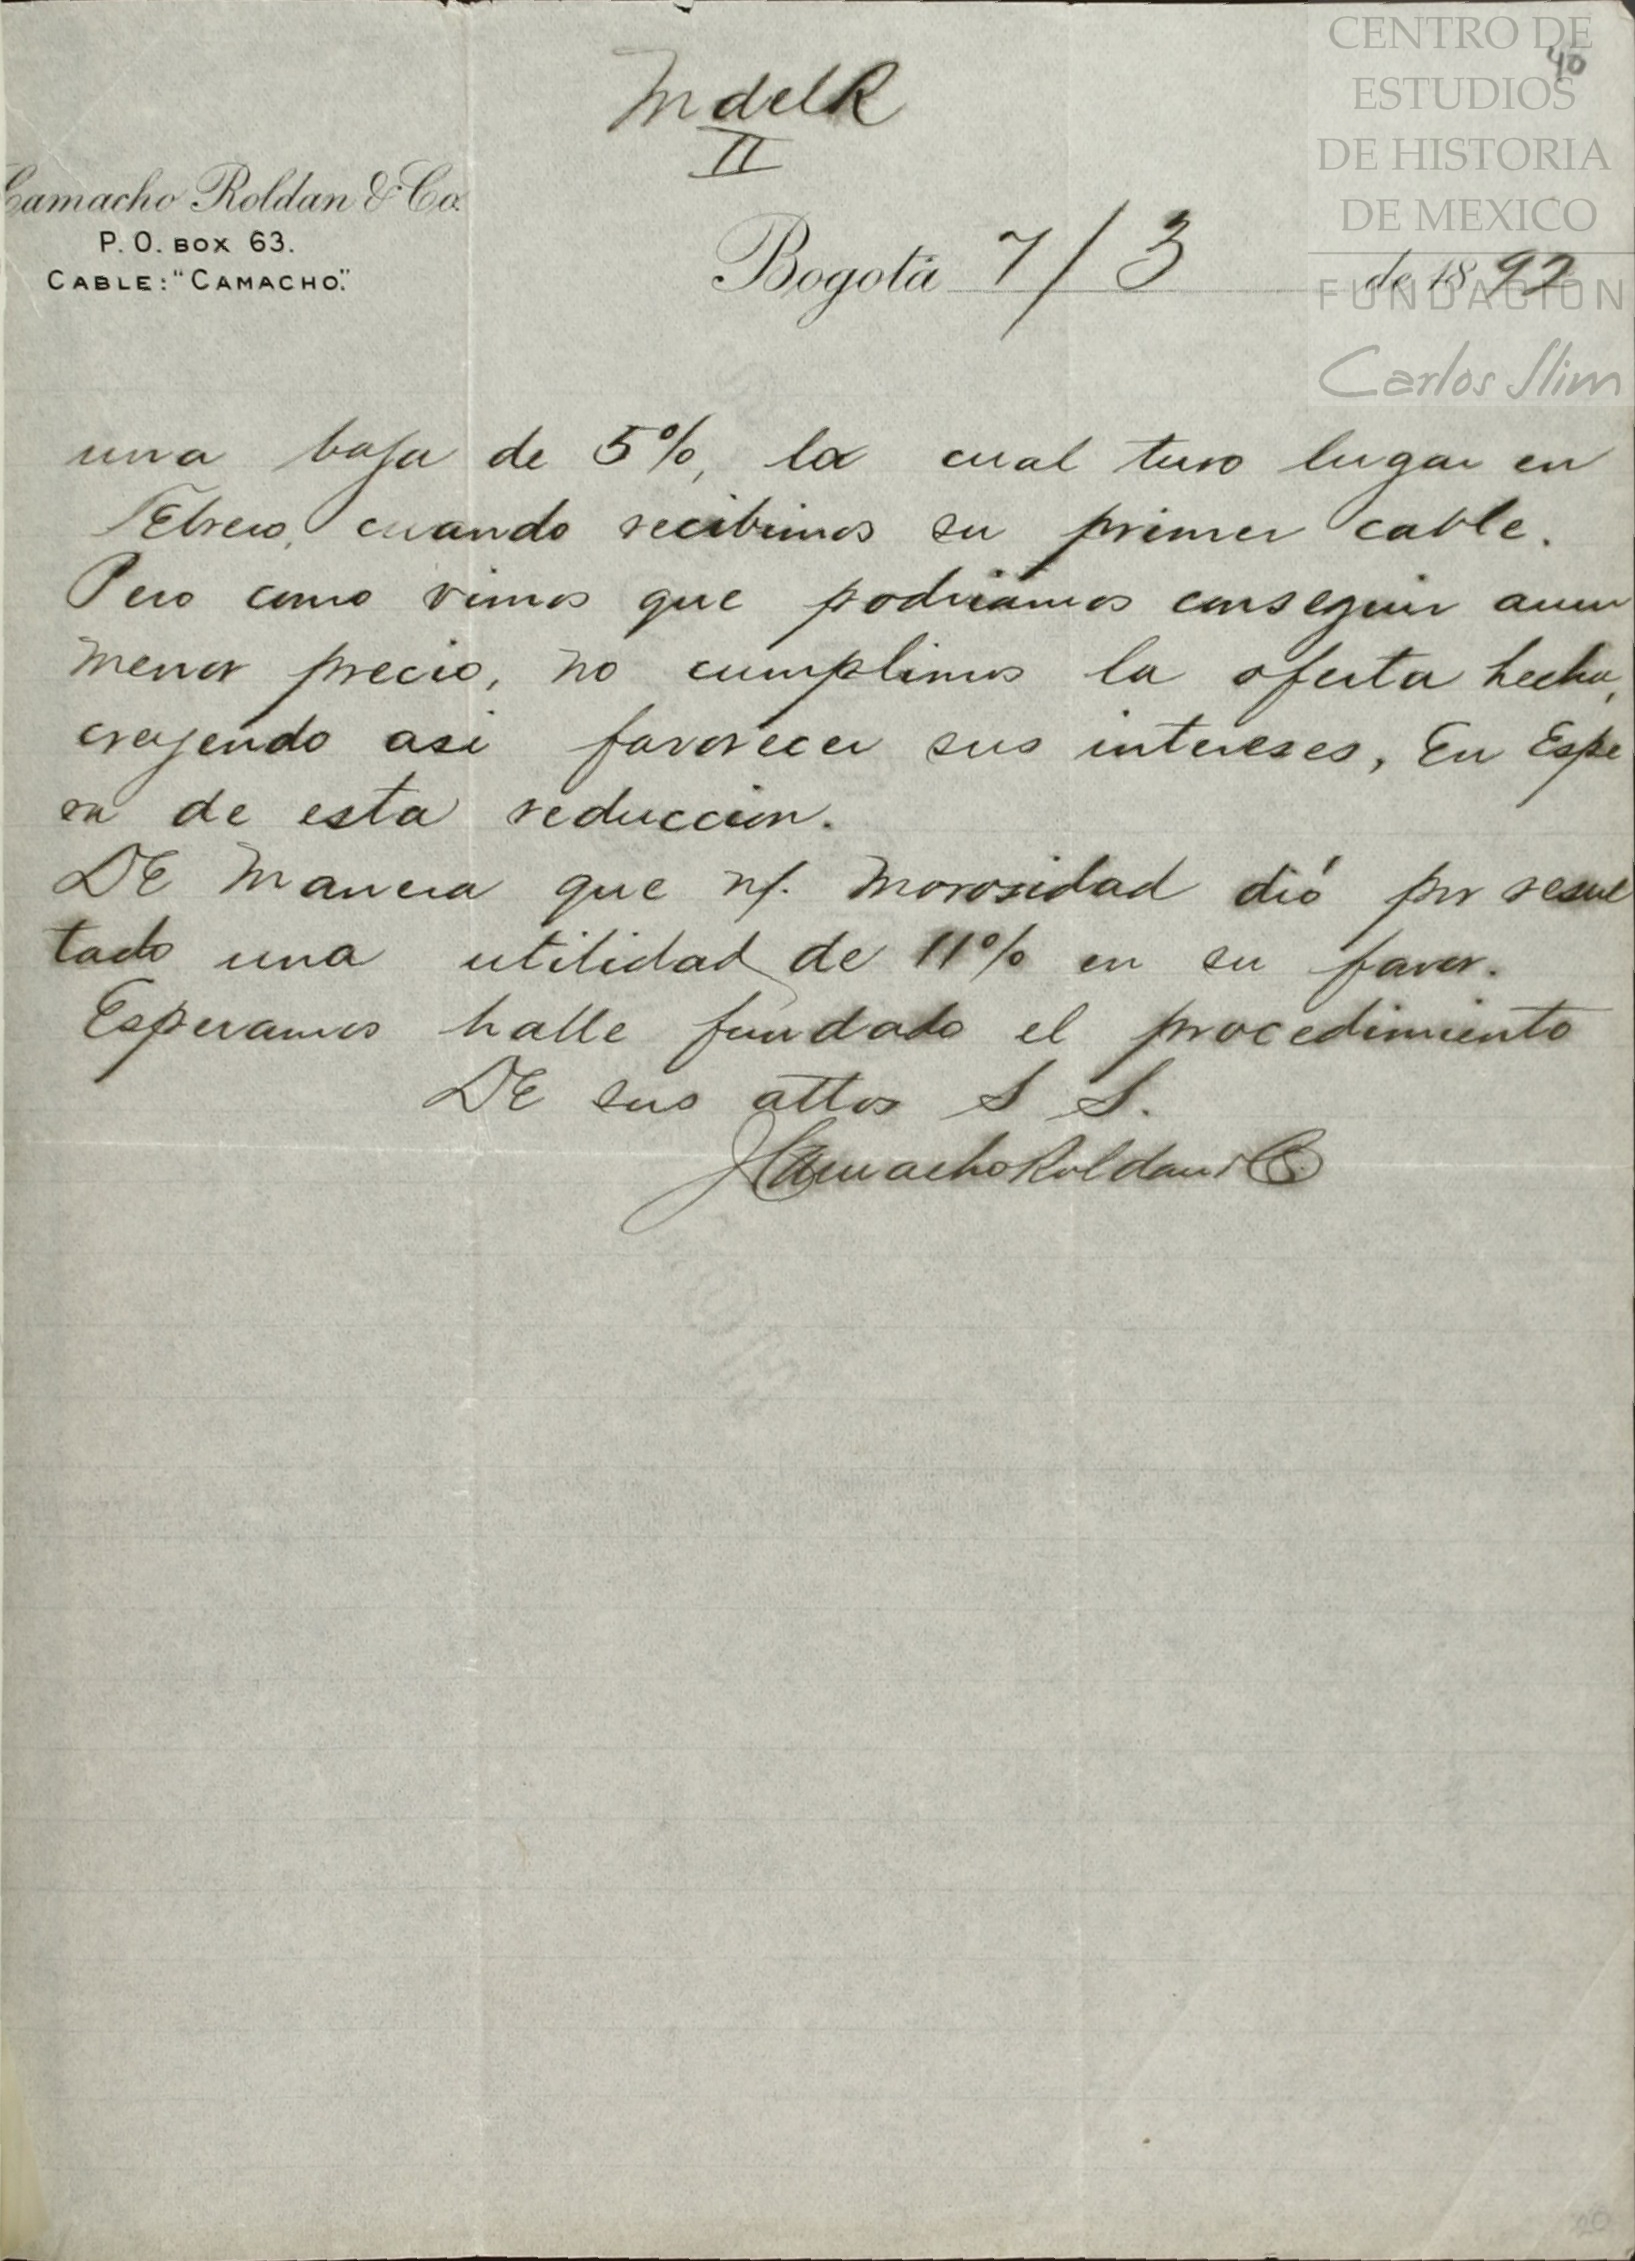 CENTRO DE
ESTUDIOS
DE HISTORIA
DE MEXICO
FUNDACION
Carlos Slim
40
M del R
II
Camacho Roldan & Co.
P. O. BOX 63.
CABLE: "CAMACHO".
Bogotá 7/3 de 1892
una baja de 5%, la cual tuvo lugar en
Febrero, cuando recibimos su primer cable.
Pero como vimos que podriamos conseguir aun
menor precio, no cumplimos la oferta hecha,
creyendo asi favorecer sus intereses, En Espe
ra de esta reduccion.
DE Manera que n/. Morosidad dió por resul
tado una utilidad de 11% en su favor.
Esperamos halle fundado el procedimiento
DE sus attos S S.
Camacho Roldan & Co